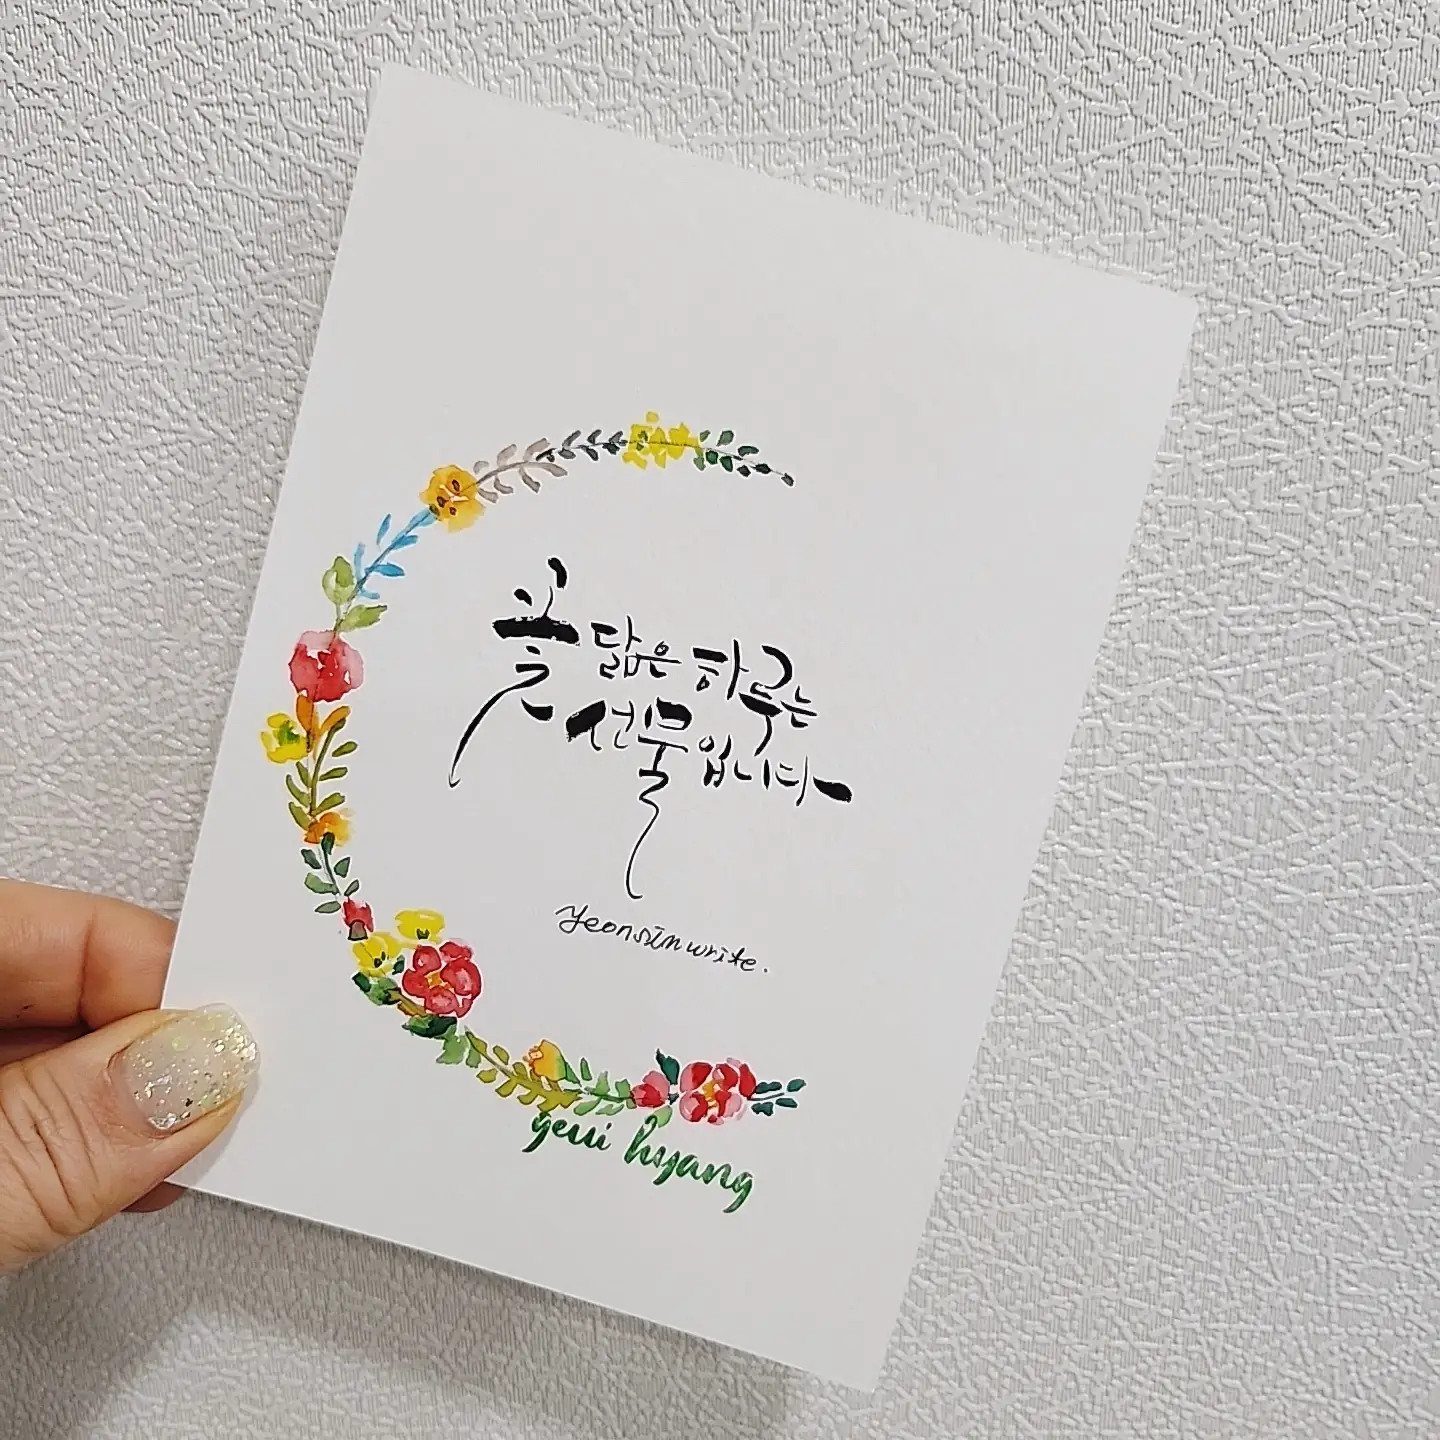 꽃 닮은 하루는
선물입니다
yeonsinwrite.
yeui hyang